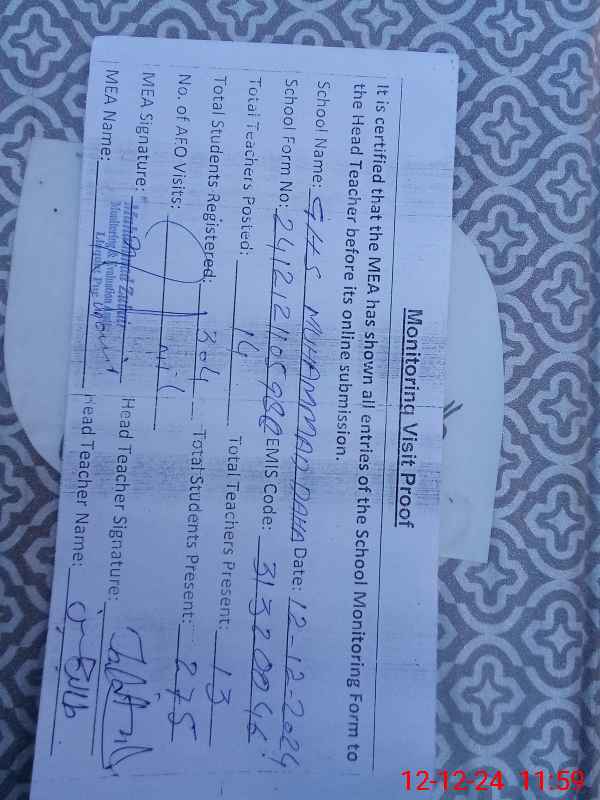 Monitoring Visit Proof
It is certified that the MEA has shown all entries of the School Monitoring Form to
the Head Teacher before its online submission.
School Name: GHS MUHAMMAD DAHA Date: 12-12-2024
School Form No: EMIS Code: 31320046
Total Teachers Posted: 14 Total Teachers Present: 13
Total Students Registered: 304 Total Students Present: 275
No. of AFO Visits: Nil
MEA Signature: Head Teacher Signature:
MEA Name: Head Teacher Name:
Muhammad Zubair
Monitoring & Evaluation
12-12-24 11:59